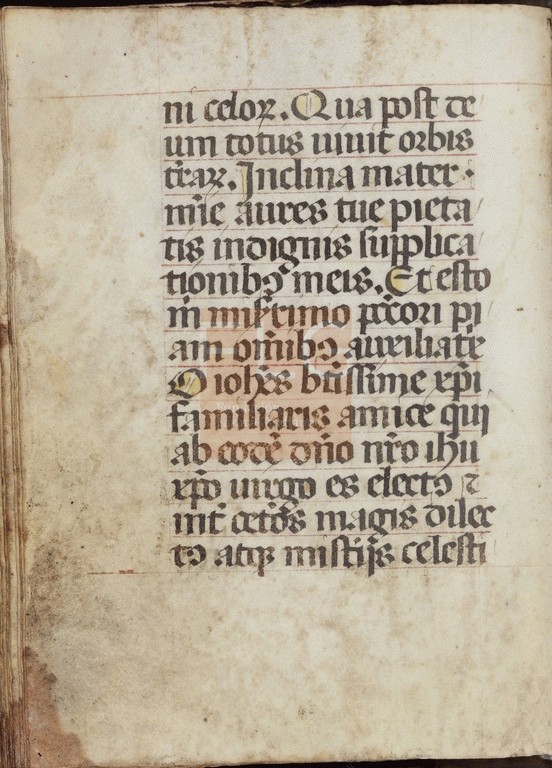 ni celoꝝ. Qua post de
um totus uiuit orbis
t̃raꝝ. Inclina mater
mie̅ aures tue pieta
tis indignis supplica
tionibꝫ meis. Et esto
m̅ mis̃rimo pcc̃ori pi
am om̅ibꝫ auxiliat̃
O ioh̅s bt̃issime xp̅i
familiaris amice qui
ab eode̅ dn̅o nr̅o ihu̅
xp̅o uirgo es electꝰ ⁊
int̃ cet̃os magis dilec
tꝰ atqꝫ mist̃ijs celesti